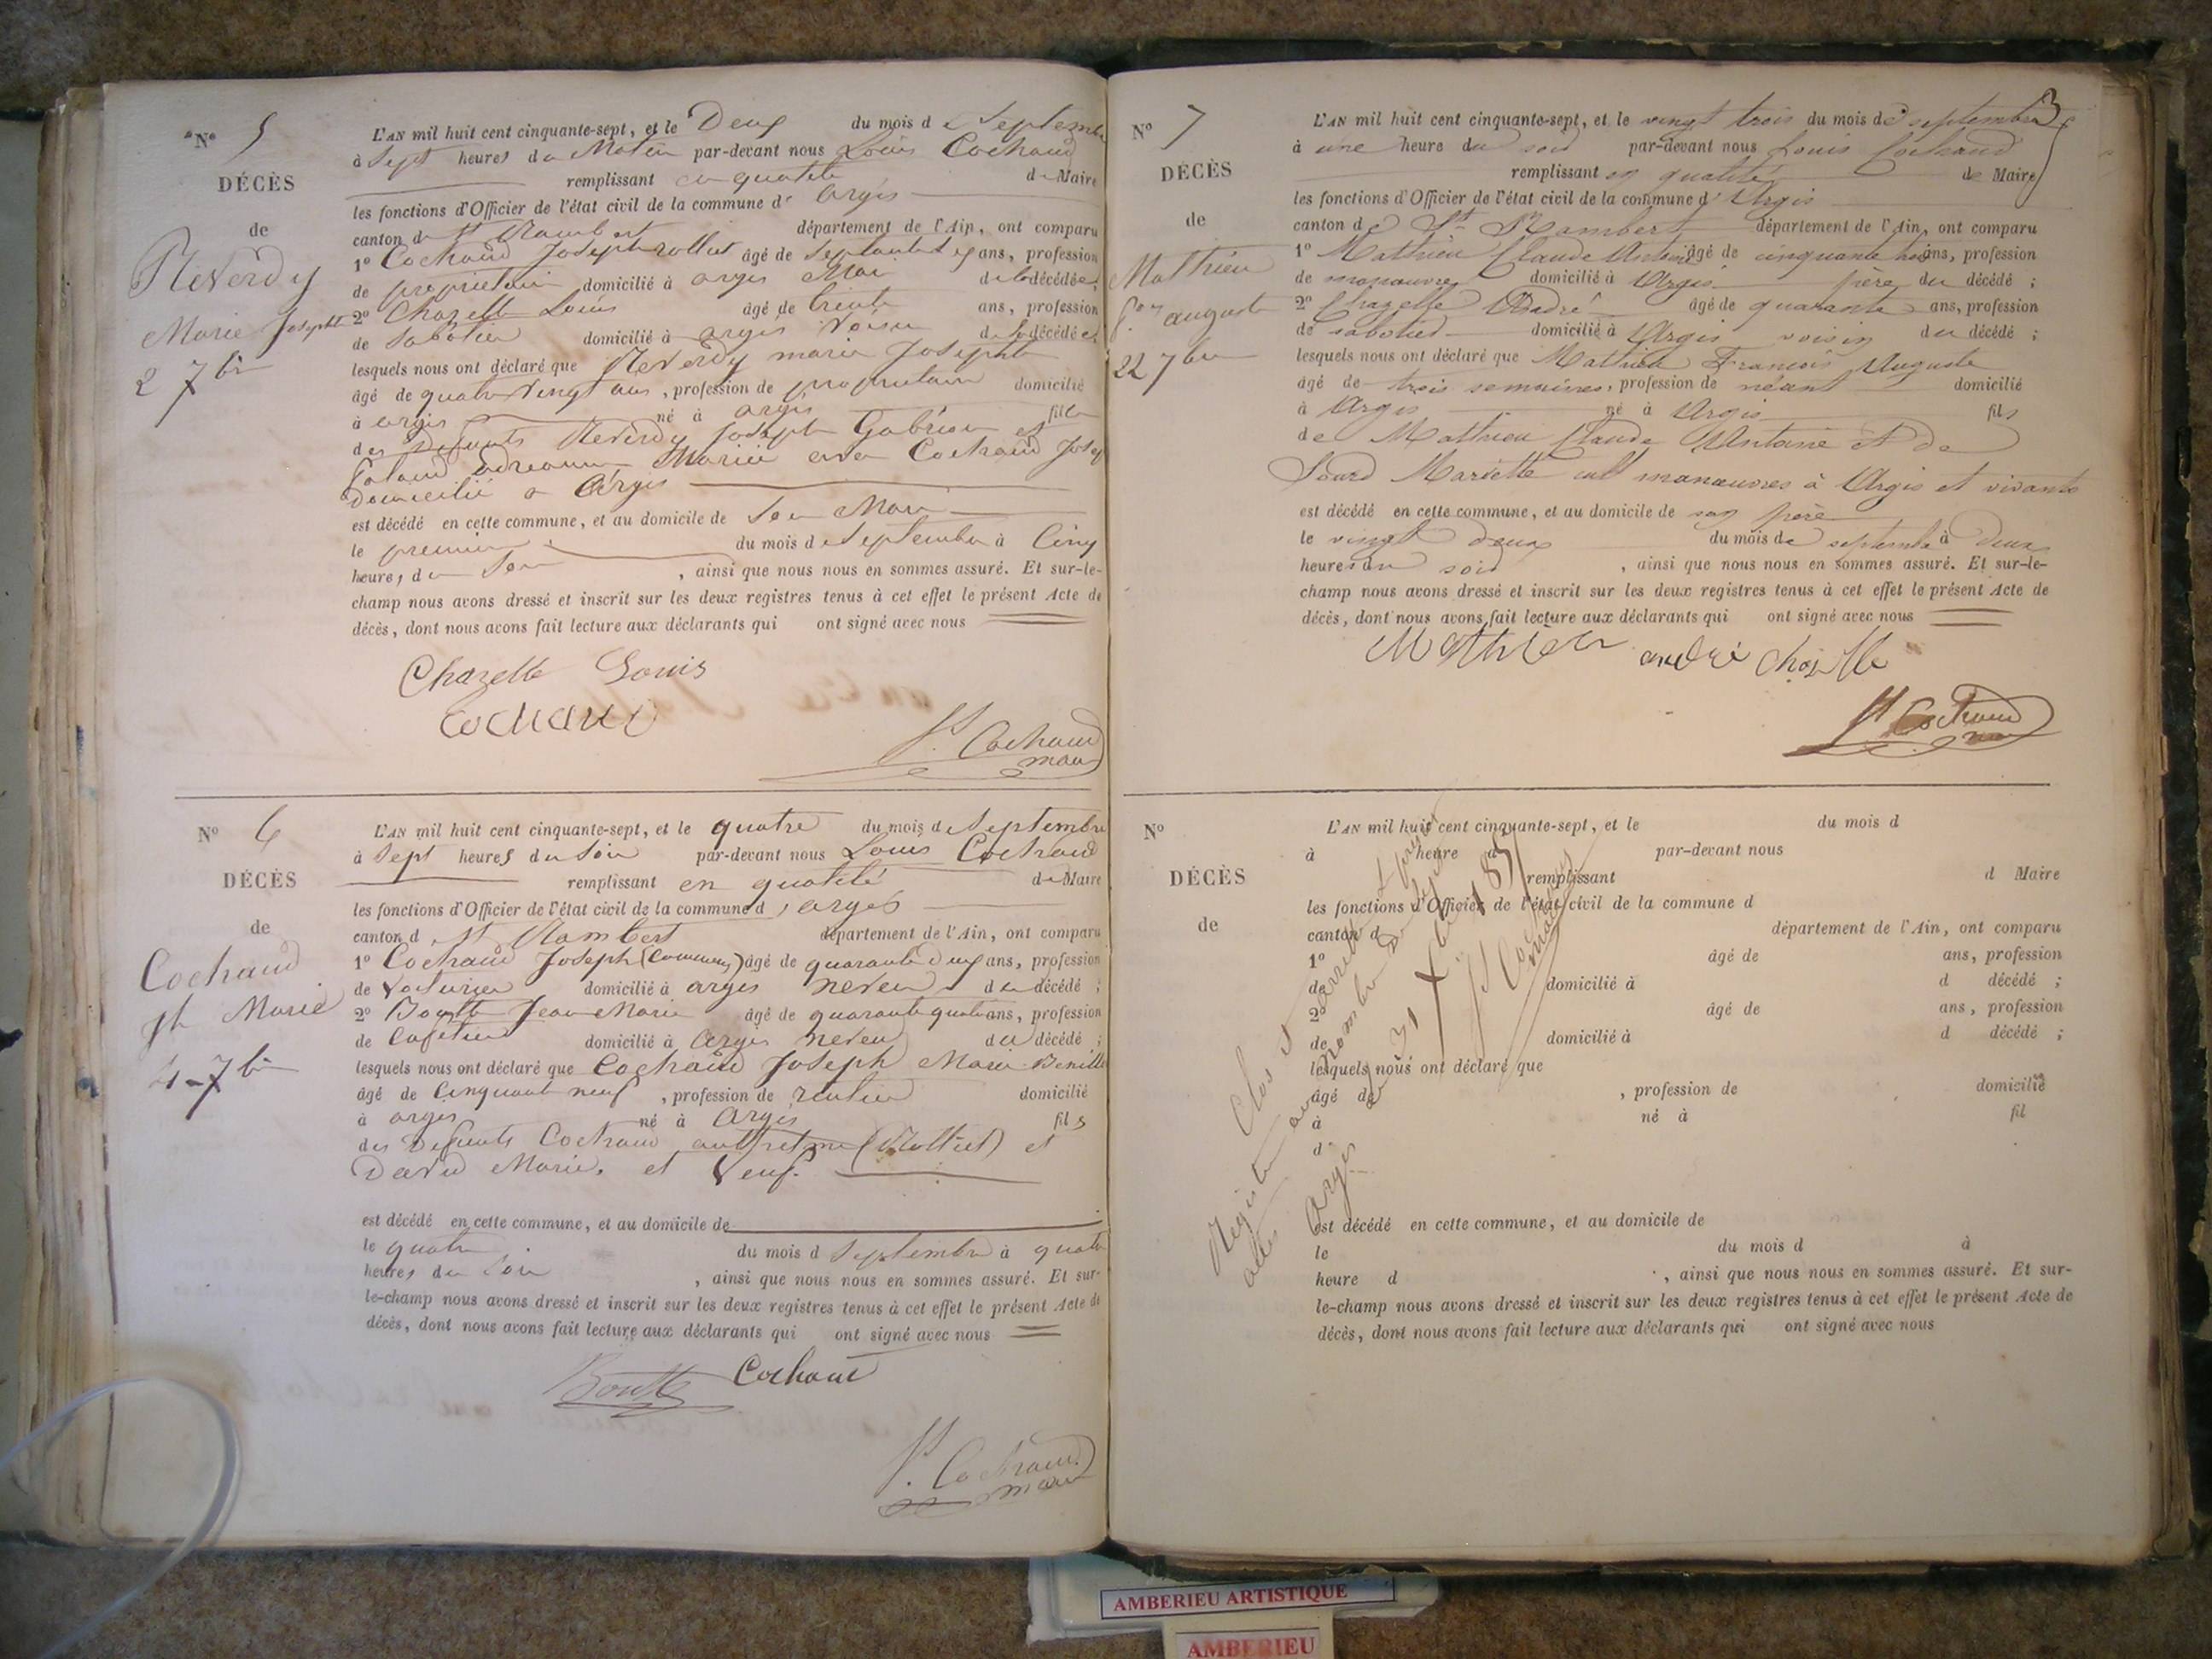 N° 5
DÉCÈS
de
Reverdy
Marie Josephte
2 7bre
L'AN mil huit cent cinquante-sept, et le Deux du mois de Septembre
à Sept heures du Matin par-devant nous Louis Cochaud
remplissant en qualité de Maire
les fonctions d'Officier de l'état civil de la commune d' argis
canton de St Rambert département de l'Ain, ont comparu
1° Cochaud Joseph rollet âgé de ans, profession
de proprietaire domicilié à argis Mari de la décédée
2° Chazelle Louis âgé de trente ans, profession
de Sabotier domicilié à argis voisin de la décédée
lesquels nous ont déclaré que Reverdy marie Josephte
âgé de quatre vingt ans, profession de proprietaire domicilié
à argis né à argis fille
des Defunts Reverdy Joseph Gabriel et
Mariée avec Cochaud Josep
domicilié a Argis
est décédé en cette commune, et au domicile de Son Mari
le premier du mois de Septembre à Cinq
heures du Soir, ainsi que nous nous en sommes assuré. Et sur-le-
champ nous avons dressé et inscrit sur les deux registres tenus à cet effet le présent Acte de
décès, dont nous avons fait lecture aux déclarants qui ont signé avec nous
Chazelle Louis
Cochaud
Ls Cochaud
maire
N° 6
DÉCÈS
de
Cochaud
jh Marie
4 7bre
L'AN mil huit cent cinquante-sept, et le quatre du mois de Septembre
à Sept heures du Soir par-devant nous Louis Cochaud
remplissant en qualité de Maire
les fonctions d'Officier de l'état civil de la commune d'argis
canton d St Rambert département de l'Ain, ont comparu
1° Cochaud Joseph âgé de quarante deux ans, profession
de Voiturier domicilié à argis neveu du décédé ;
2° Jean Marie âgé de quarante quatre ans, profession
de Cafetier domicilié à Argis neveu du décédé ;
lesquels nous ont déclaré que Cochaud Joseph Marie
âgé de Cinquante neuf, profession de rentier domicilié
à argis né à Argis fils
des Defunts Cochaud et
David Marie. et Veuf.
est décédé en cette commune, et au domicile de
le quatre du mois d Septembre à quatre
heures du Soir, ainsi que nous nous en sommes assuré. Et sur-
le-champ nous avons dressé et inscrit sur les deux registres tenus à cet effet le présent Acte de
décès, dont nous avons fait lecture aux déclarants qui ont signé avec nous
Cochaud
Ls Cochaud
maire
3
N° 7
DÉCÈS
de
Mathieu
auguste
22 7bre
L'AN mil huit cent cinquante-sept, et le vingt trois du mois de septembre
à une heure du soir par-devant nous Louis Cochaud
remplissant en qualité de Maire
les fonctions d'Officier de l'état civil de la commune d'Argis
canton de St Rambert département de l'Ain, ont comparu
1° Mathieu Claude Antoine âgé de cinquante trois ans, profession
de manœuvre domicilié à Argis père du décédé ;
2° Chazelle André âgé de quarante ans, profession
de sabotier domicilié à Argis voisin du décédé ;
lesquels nous ont déclaré que Mathieu François Auguste
âgé de trois semaines, profession de néant domicilié
à Argis né à Argis fils
de Mathieu Claude Antoine et de
Mariette manœuvres à Argis et vivants
est décédé en cette commune, et au domicile de son père
le vingt deux du mois de septembre à deux
heures du soir, ainsi que nous nous en sommes assuré. Et sur-le-
champ nous avons dressé et inscrit sur les deux registres tenus à cet effet le présent Acte de
décès, dont nous avons fait lecture aux déclarants qui ont signé avec nous
Mathieu andré chazelle
Ls Cochaud
maire
N°
DÉCÈS
de
L'AN mil huit cent cinquante-sept, et le du mois d
à heure d par-devant nous
remplissant d Maire
les fonctions d'Officier de l'état civil de la commune d
canton d département de l'Ain, ont comparu
1° âgé de ans, profession
de domicilié à d décédé ;
2° âgé de ans, profession
de domicilié à d décédé ;
lesquels nous ont déclaré que
âgé d , profession de domicilié
à né à fil
d
est décédé en cette commune, et au domicile de
le du mois d à
heure d , ainsi que nous nous en sommes assuré. Et sur-
le-champ nous avons dressé et inscrit sur les deux registres tenus à cet effet le présent Acte de
décès, dont nous avons fait lecture aux déclarants qui ont signé avec nous
Clos et arrêté le
Registre au nombre de Sept
actes
Argis le 31 Xbre 1857
Ls Cochaud
maire
AMBERIEU ARTISTIQUE
AMBERIEU